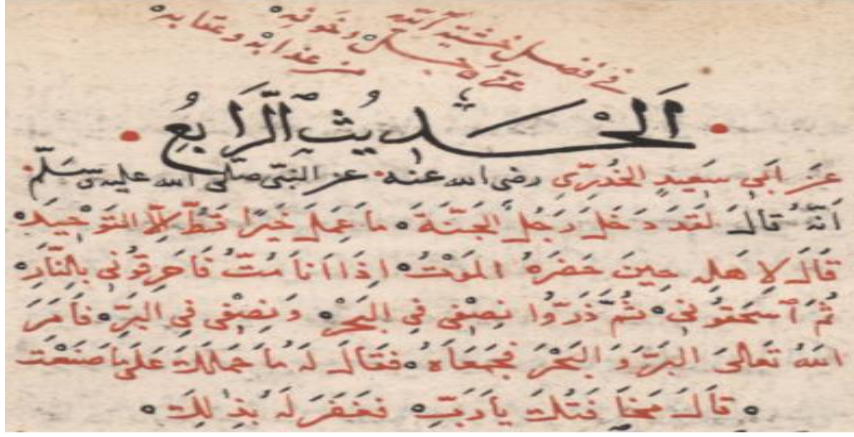 في فضل خشية الله وخوفه
عز وجل من عذابه وعقابه
اَلْحَدِيثُ الرَّابِعُ
عن ابي سَعِيدٍ الخُدرِي رضى الله عنه عن النبي صلى الله عليه وسلم
اَنَّهُ قالَ لَقَد دَخَلَ رَجُلٌ الجَنَّةَ مَا عَمِلَ خَيرًا قطُّ اِلَّا التَوحِيدَ
قالَ لِاَهلِهِ حِينَ حَضَرَهُ المَوْتُ اِذَا اَنا مُتُّ فَاَحرِقُونى بِالنَّارِ
ثُمَّ اَسحَقُونى ثُمَّ ذَرُّوا نِصْفِى فِي البَحْرِ وَنِصْفِى فِي البَرِّ فَاَمَرَ
اللهُ تَعالىَ البَرَّ وَالبَحْرَ فجَمَعَاهُ فَقالَ لَهُ مَا حَمَلَكَ عَلَى مَا صَنَعْتَ
قالَ مَخافتكَ يَا رَبِّ فغَفَرَ لَهُ بِذٰلِكَ